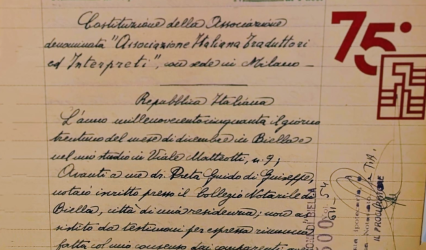 Costituzione della Associazione
denominata "Associazione Italiana Traduttori
ed Interpreti", con sede in Milano
Repubblica Italiana
L'anno millenovecentocinquanta il giorno
trentuno del mese di dicembre in Biella e
nel mio studio in Viale Matteotti, n. 7;
Avanti a me dr. Guido di Giuseppe,
notaio iscritto presso il Collegio Notarile di
Biella, città di mia residenza; non as
sistito da testimoni per espressa rinuncia
fatta col mio consenso dai comparenti
75°
IL PROCURATORE